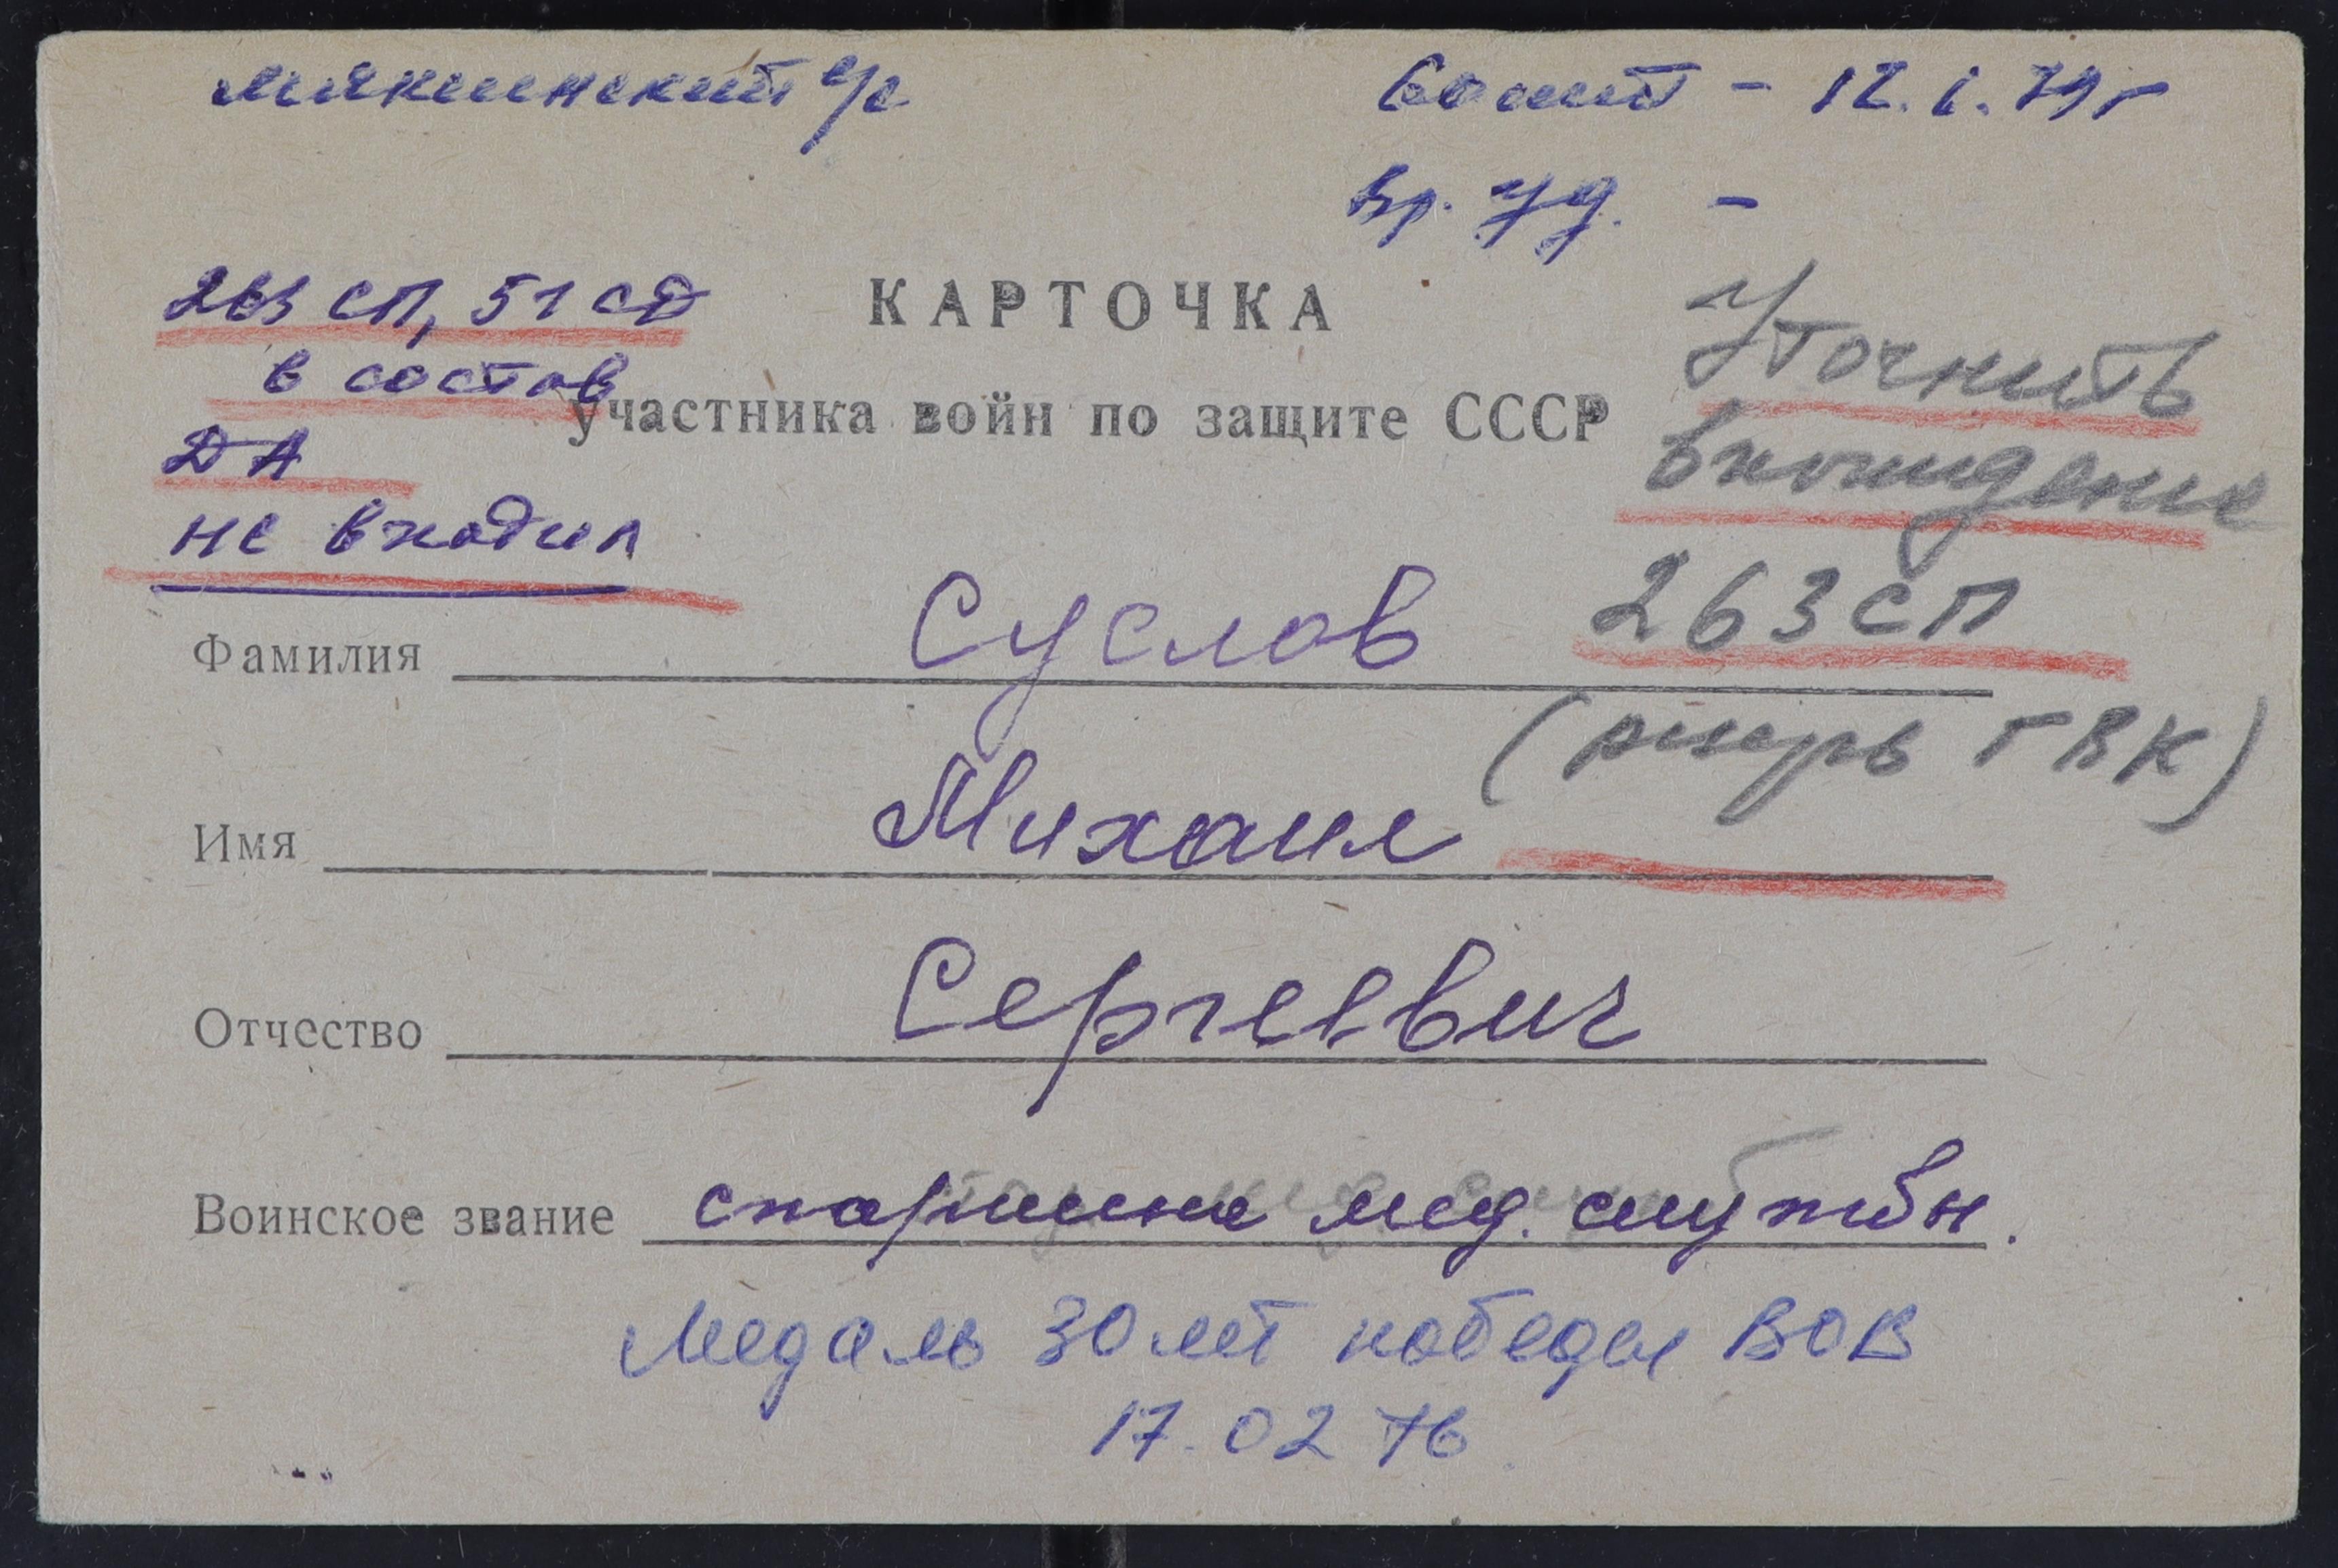 Мякишинский с/с
Сообщ - 12.1.79г
Вр. уд. -
263 СП, 51 СД
в состав
ДА
не входил
КАРТОЧКА
участника войн по защите СССР
Уточнить
вхождение
263 СП
(резерв ГВК)
Фамилия Суслов
Имя Михаил
Отчество Сергеевич
Воинское звание старшина мед. службы.
Медаль 30 лет победы ВОВ
17.02 76